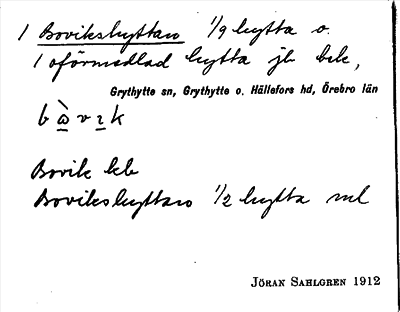 1 Bovikshyttan 1/9 hytta o.
1 oförmedlad hytta jb bek,
Grythytte sn, Grythytte o. Hällefors hd, Örebro län
b ὼ v ı k
Bovik kb
Bovikshyttan 1/2 hytta ml
JÖRAN SAHLGREN 1912